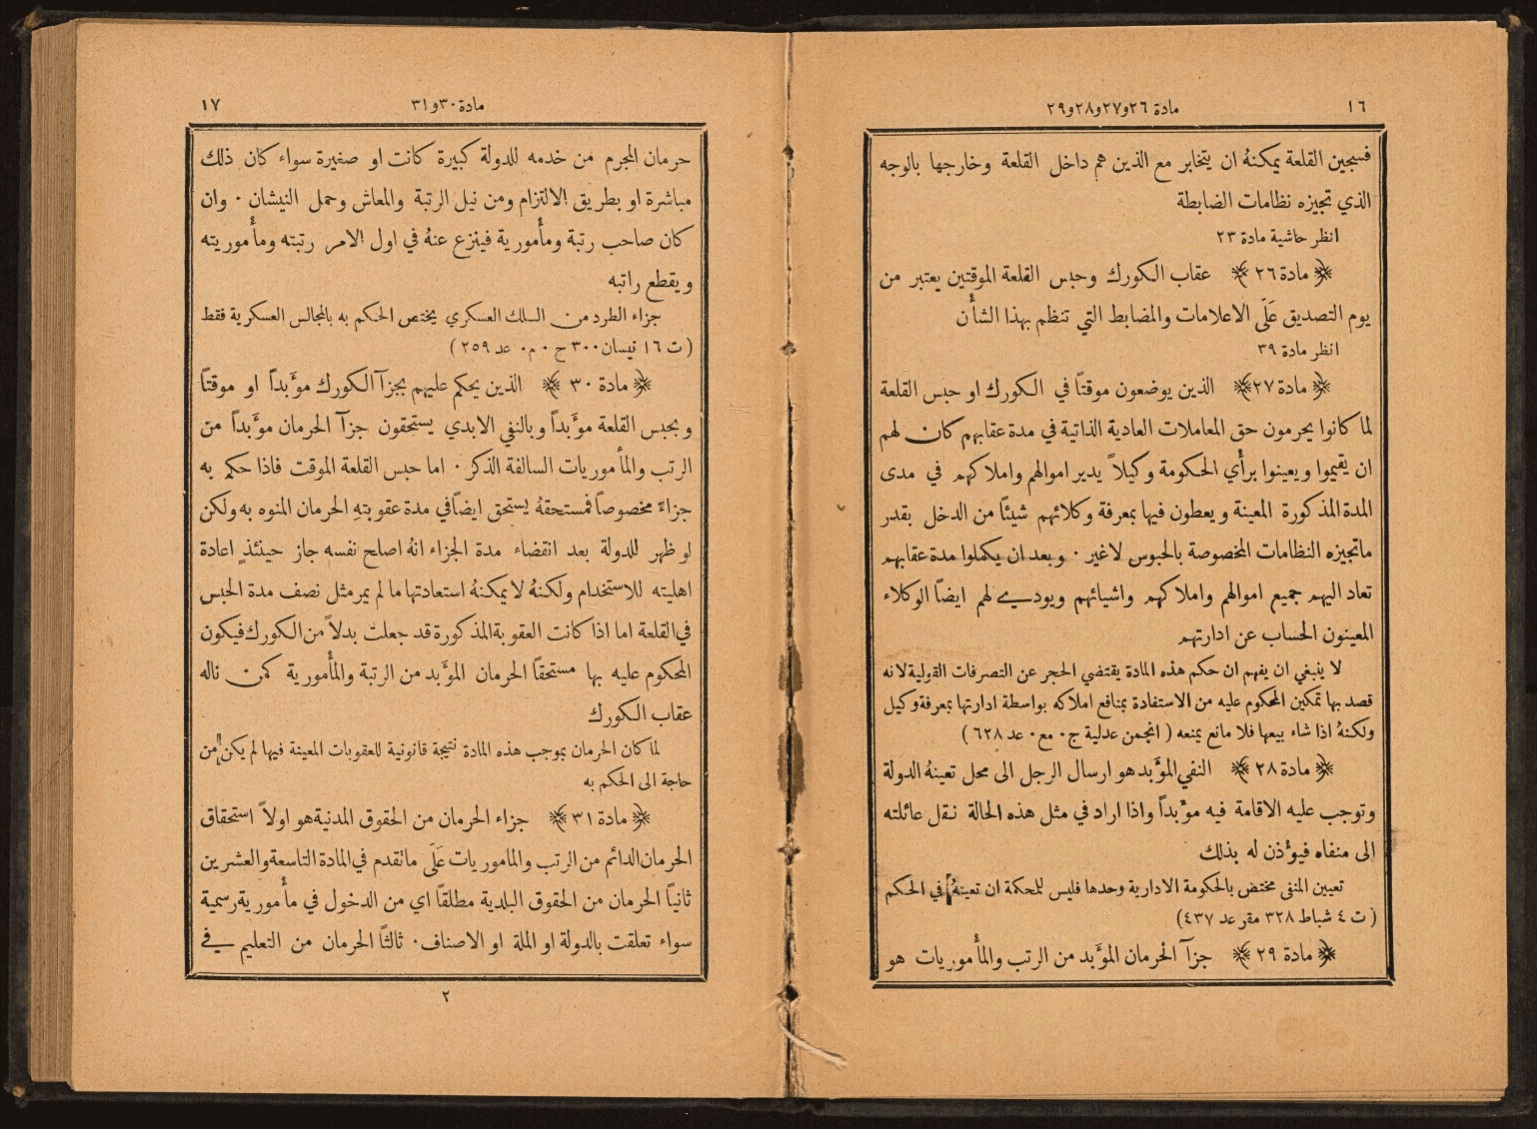 ١٦
مادة ٢٦و٢٧و٢٨و٢٩
فسجين القلعة يمكنهُ ان يتخابر مع الذين هم داخل القلعة وخارجها بالوجه
الذي تجيزه نظامات الضابطة
انظر حاشية مادة ٢٣
﴿ مادة ٢٦ ﴾ عقاب الكورك وحبس القلعة الموقتين يعتبر من
يوم التصديق عَلَى الاعلامات والمضابط التي تنظم بهذا الشأن
انظر مادة ٣٩
﴿ مادة ٢٧ ﴾ الذين يوضعون موقتاً في الكورك او حبس القلعة
لما كانوا يحرمون حق المعاملات العادية الذاتية في مدة عقابهم كان لهم
ان يقيموا ويعينوا برأي الحكومة وكيلاً يدير اموالهم واملاكهم في مدى
المدة المذكورة المعينة ويعطون فيها بمعرفة وكلائهم شيئًا من الدخل بقدر
ماتجيزه النظامات المخصوصة بالحبوس لاغير ٠ وبعد ان يكملوا مدة عقابهم
تعاد اليهم جميع اموالهم واملاكهم واشيائهم ويودي لهم ايضاً الوكلاء
المعينون الحساب عن ادارتهم
لا ينبغي ان يفهم ان حكم هذه المادة يقتضي الحجر عن التصرفات القولية لانه
قصد بها تمكين المحكوم عليه من الاستفادة بمنافع املاكه بواسطة ادارتها بمعرفة وكيل
ولكنهُ اذا شاء بيعها فلا مانع يمنعه ( انجمن عدلية ج٠ مع٠ عد ٦٢٨ )
﴿ مادة ٢٨ ﴾ النفي الموَّبد هو ارسال الرجل الى محل تعينهُ الدولة
وتوجب عليه الاقامة فيه موَّبداً واذا اراد في مثل هذه الحالة نقل عائلته
الى منفاه فيوَّذن له بذلك
تعيين المنفى مختص بالحكومة الادارية وحدها فليس للمحكمة ان تعينهُ في الحكم
( ت ٤ شباط ٣٢٨ مقر عد ٤٣٧ )
﴿ مادة ٢٩ ﴾ جزآ الحرمان الموَّبد من الرتب والمأموريات هو
مادة ٣٠و٣١
١٧
حرمان المجرم من خدمه للدولة كبيرة كانت او صغيرة سواء كان ذلك
مباشرة او بطريق الالتزام ومن نيل الرتبة والمعاش وحمل النيشان ٠ وان
كان صاحب رتبة ومأمورية فينزع عنهُ في اول الامر رتبته ومأموريته
ويقطع راتبه
جزاء الطرد من السلك العسكري يختص الحكم به بالمجالس العسكرية فقط
( ت ١٦ نيسان ٣٠٠ ج ٠ م٠ عد ٢٥٩ )
﴿ مادة ٣٠ ﴾ الذين يحكم عليهم بجزآ الكورك موَّبداً او موقتاً
وبحبس القلعة موَّبداً وبالنفي الابدي يستحقون جزآ الحرمان موَّبداً من
الرتب والمأموريات السالفة الذكر ٠ اما حبس القلعة الموقت فاذا حكم به
جزاءً مخصوصاً فمستحقهُ يستحق ايضاً في مدة عقوبتهِ الحرمان المنوه به ولكن
لو ظهر للدولة بعد انقضاء مدة الجزاء انهُ اصلح نفسه جاز حينئذٍ اعادة
اهليته للاستخدام ولكنهُ لا يمكنهُ استعادتها ما لم يمر مثل نصف مدة الحبس
في القلعة اما اذا كانت العقوبة المذكورة قد جعلت بدلاً من الكورك فيكون
المحكوم عليه بها مستحقاً الحرمان الموَّبد من الرتبة والمأمورية كمن ناله
عقاب الكورك
لما كان الحرمان بموجب هذه المادة نتيجة قانونية للعقوبات المعينة فيها لم يكن من
حاجة الى الحكم به
﴿ مادة ٣١ ﴾ جزاء الحرمان من الحقوق المدنية هو اولاً استحقاق
الحرمان الدائم من الرتب والماموريات عَلَى ماتقدم في المادة التاسعة والعشرين
ثانياً الحرمان من الحقوق البلدية مطلقاً اي من الدخول في مأمورية رسمية
سواء تعلقت بالدولة او الملة او الاصناف٠ ثالثاً الحرمان من التعليم في
٢